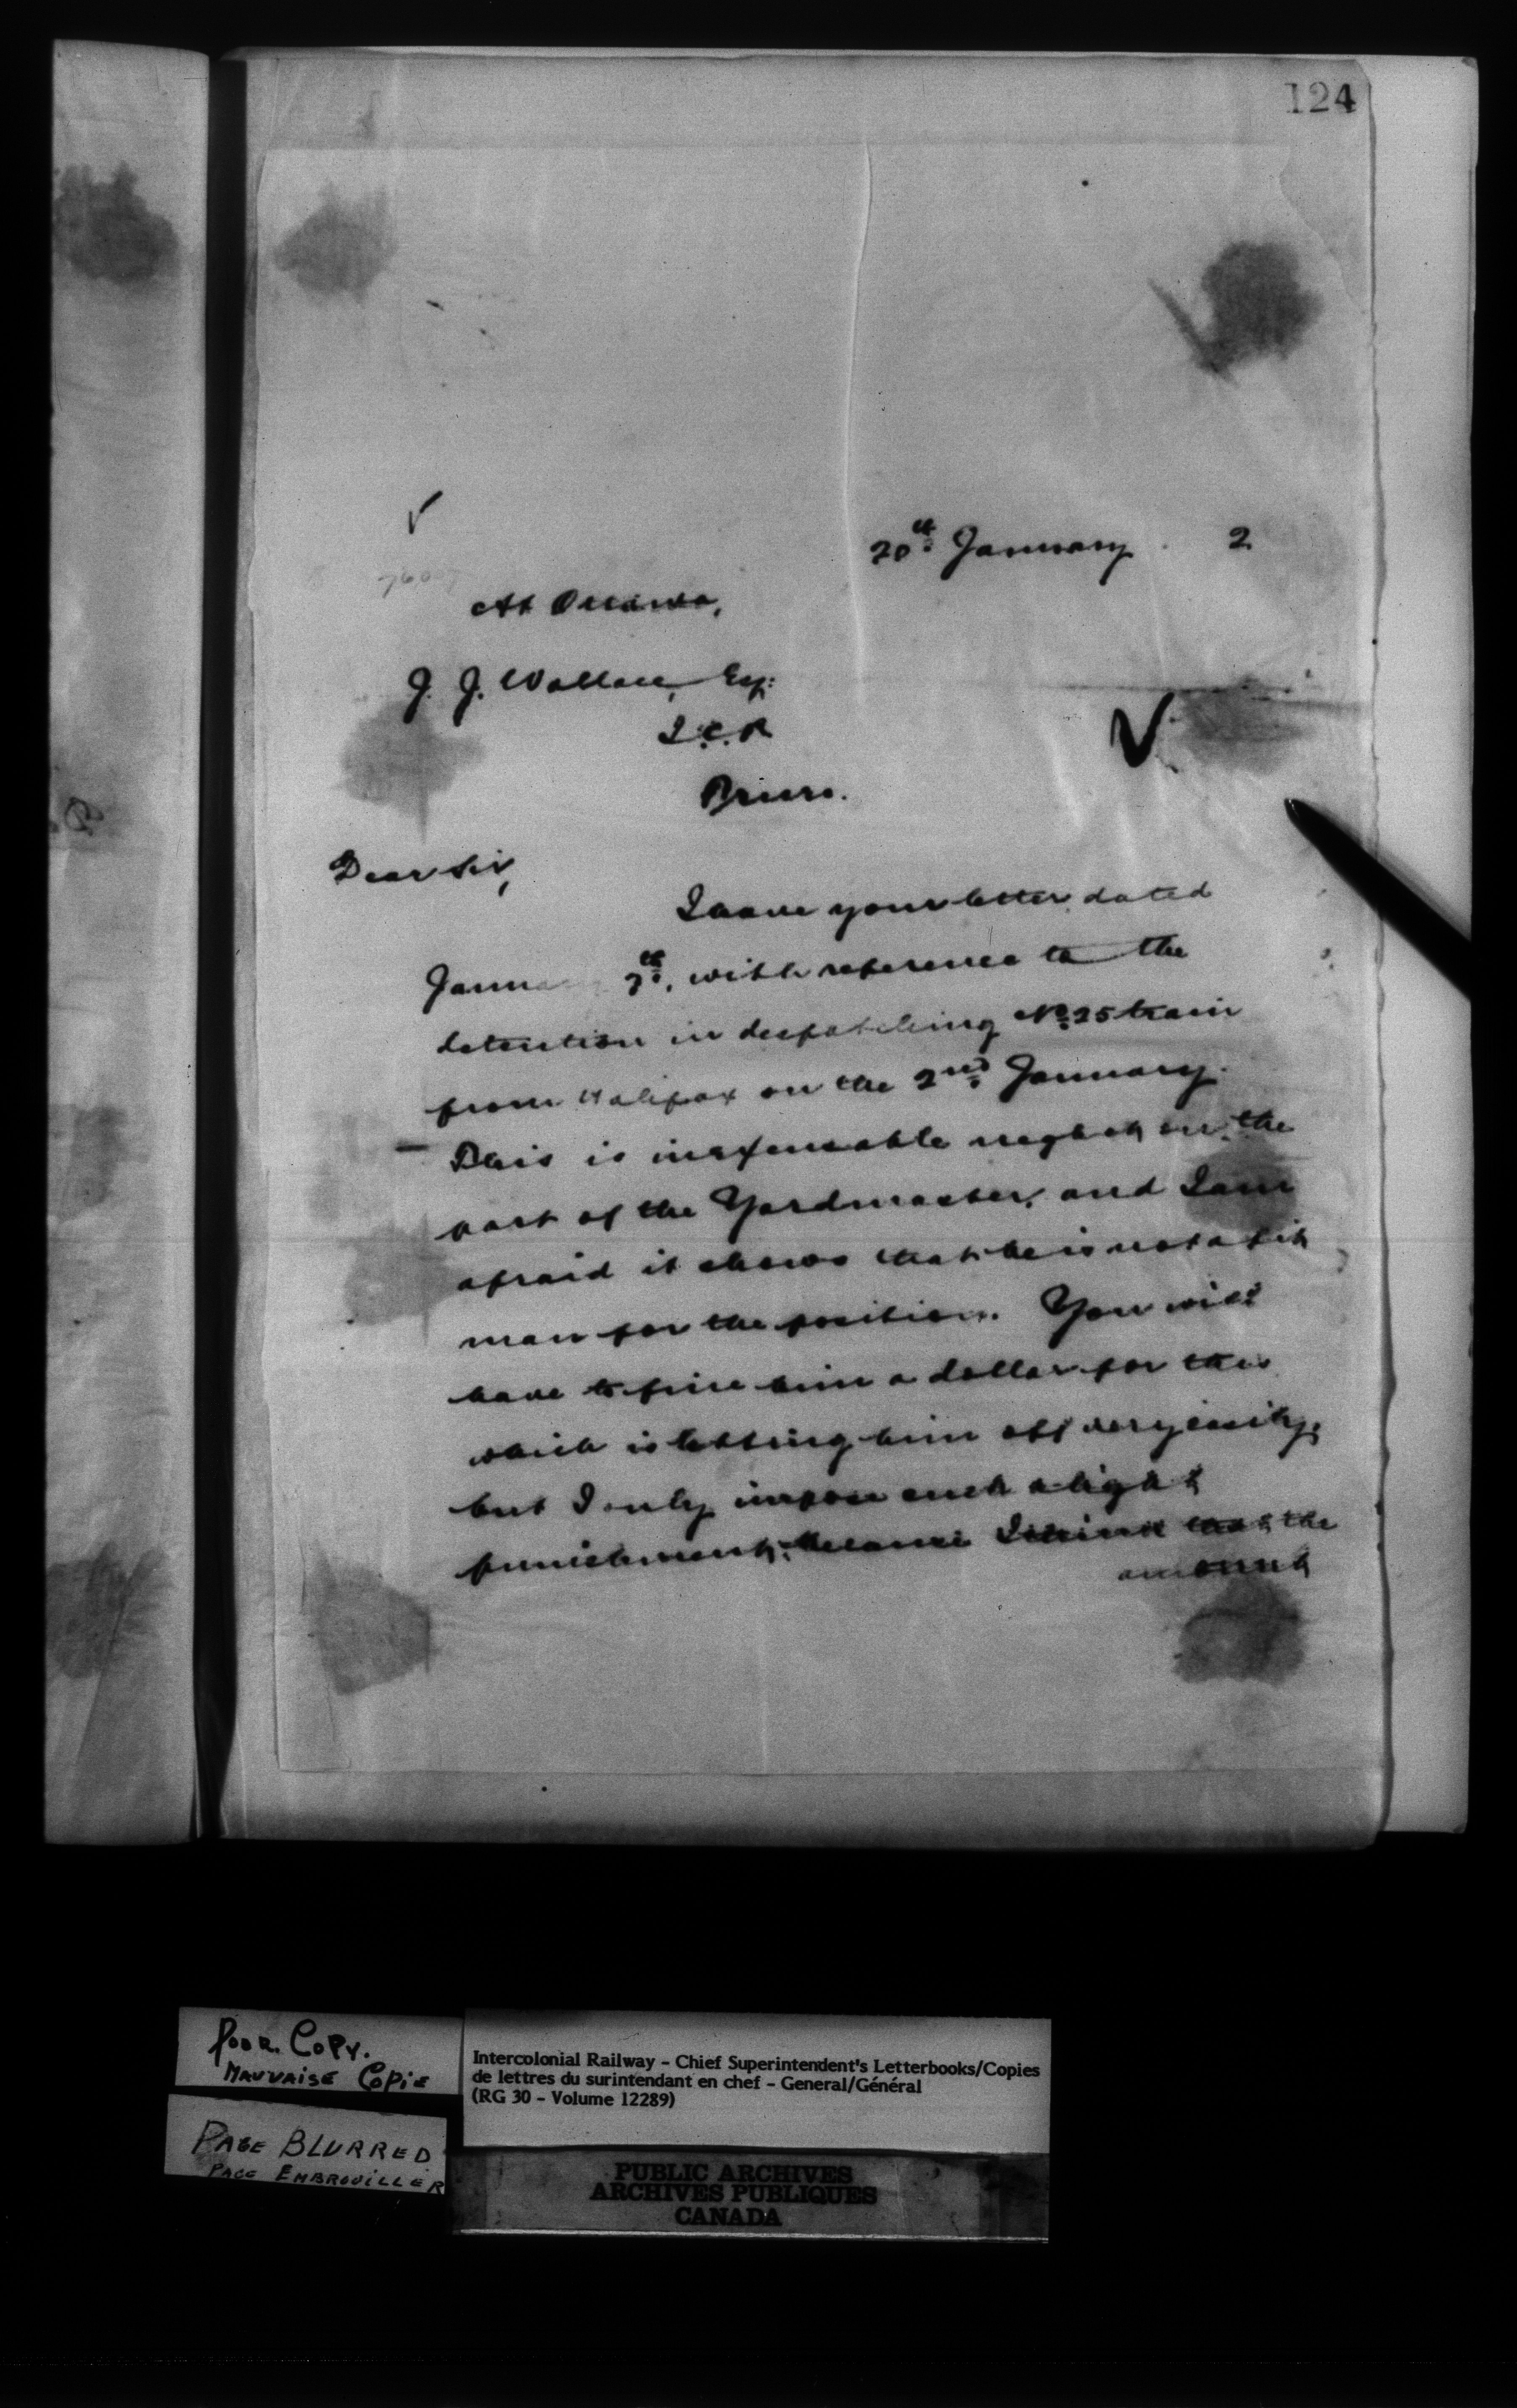 124
20th January 2
At Ottawa,
J. J. Wallace, Esq:
I.C.R
Truro.
Dear Sir,
I have your letter dated
January 7th, with reference to the
detention in despatching No 25 train
from Halifax on the 2nd January.
This is inexcusable neglect on the
part of the Yardmaster, and I am
afraid it shows that he is not a fit
man for the position. You will
have to fine him a dollar for this
which is letting him off very easily,
but I only impose such a light
punishment, because I think that the
amount
Poor Copy.
Mauvaise Copie
Page Blurred
Page Embrouiller
Intercolonial Railway - Chief Superintendent's Letterbooks/Copies
de lettres du surintendant en chef - General/Général
(RG 30 - Volume 12289)
PUBLIC ARCHIVES
ARCHIVES PUBLIQUES
CANADA